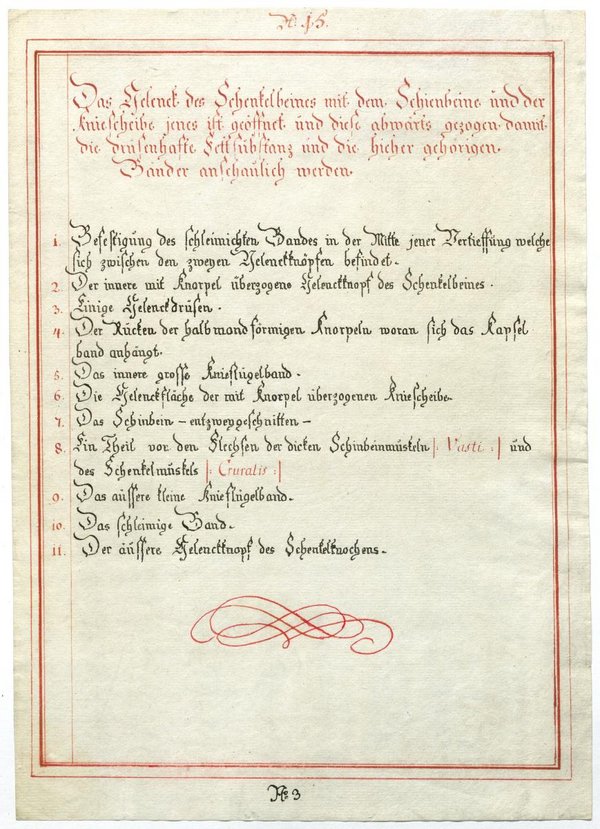 No. 15.
Das Gelenck des Schenkelbeines mit dem Schienbeine und der
Kniescheibe jenes ist geöffnet und diese abwärts gezogen damit
die drüsenhafte Fettsubstanz und die hieher gehörigen
Bänder anschaulich werden.
1. Befestigung des schleimichten Bandes in der Mitte jener Vertieffung welche
sich zwischen den zweyen Gelenckknöpfen befindet.
2. Der innere mit Knorpel überzogene Gelenckknopf des Schenkelbeines.
3. Einige Gelenckdrüsen.
4. Der Rücken der halbmondförmigen Knorpeln woran sich das Kapsel
band anhängt.
5. Das innere grosse Knieflügelband.
6. Die Gelenckfläche der mit Knorpel überzogenen Kniescheibe.
7. Das Schinbein – entzweygeschnitten –
8. Ein Theil vor den Flechsen der dicken Schinbeinmüskeln |: Vasti :| und
des Schenkelmüskels |: Cruralis :|
9. Das äussere kleine Knieflügelband.
10. Das schleimige Band.
11. Der äussere Gelenckknopf des Schenkelknochens.
No. 3